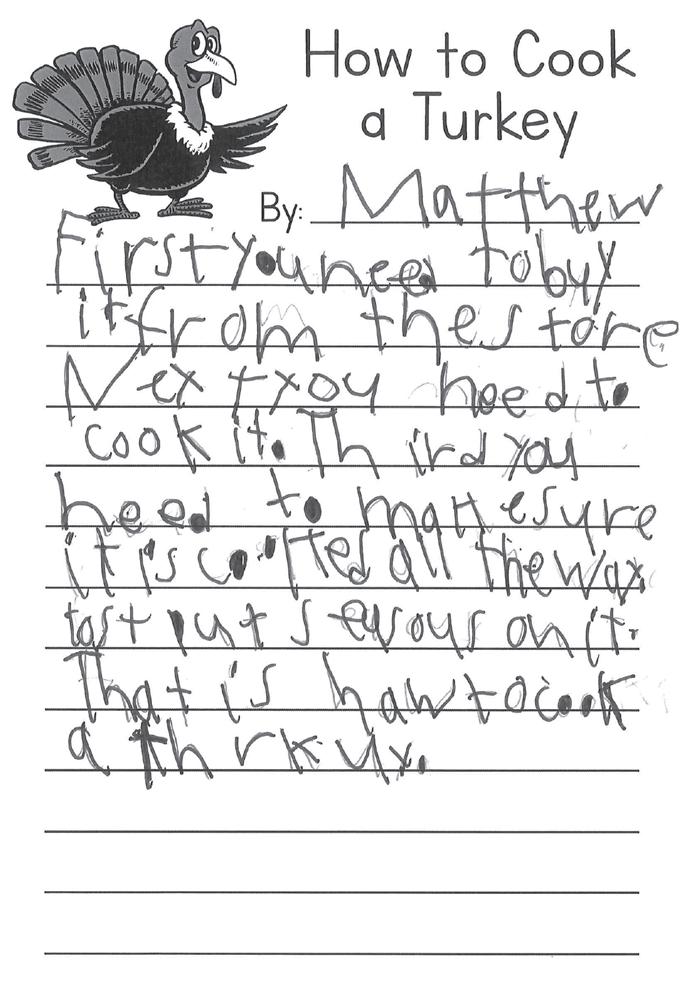 How to Cook
a Turkey
By: Matthew
First you need to buy
it from the store
Next you need to
cook it. Third you
need to make sure
it is cooked all the way.
last put seasous on it.
That is haw to cook
a thrkuy.